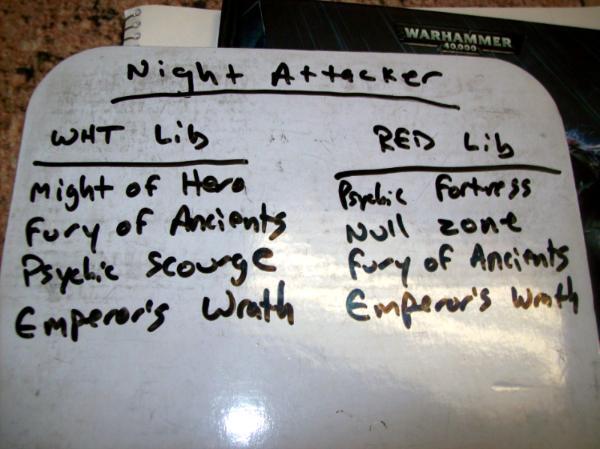 WARHAMMER
40,000
Night Attacker
WHT Lib
Might of Hero
Fury of Ancients
Psychic Scourge
Emperor's Wrath
RED Lib
Psychic Fortress
Null zone
Fury of Ancients
Emperor's Wrath